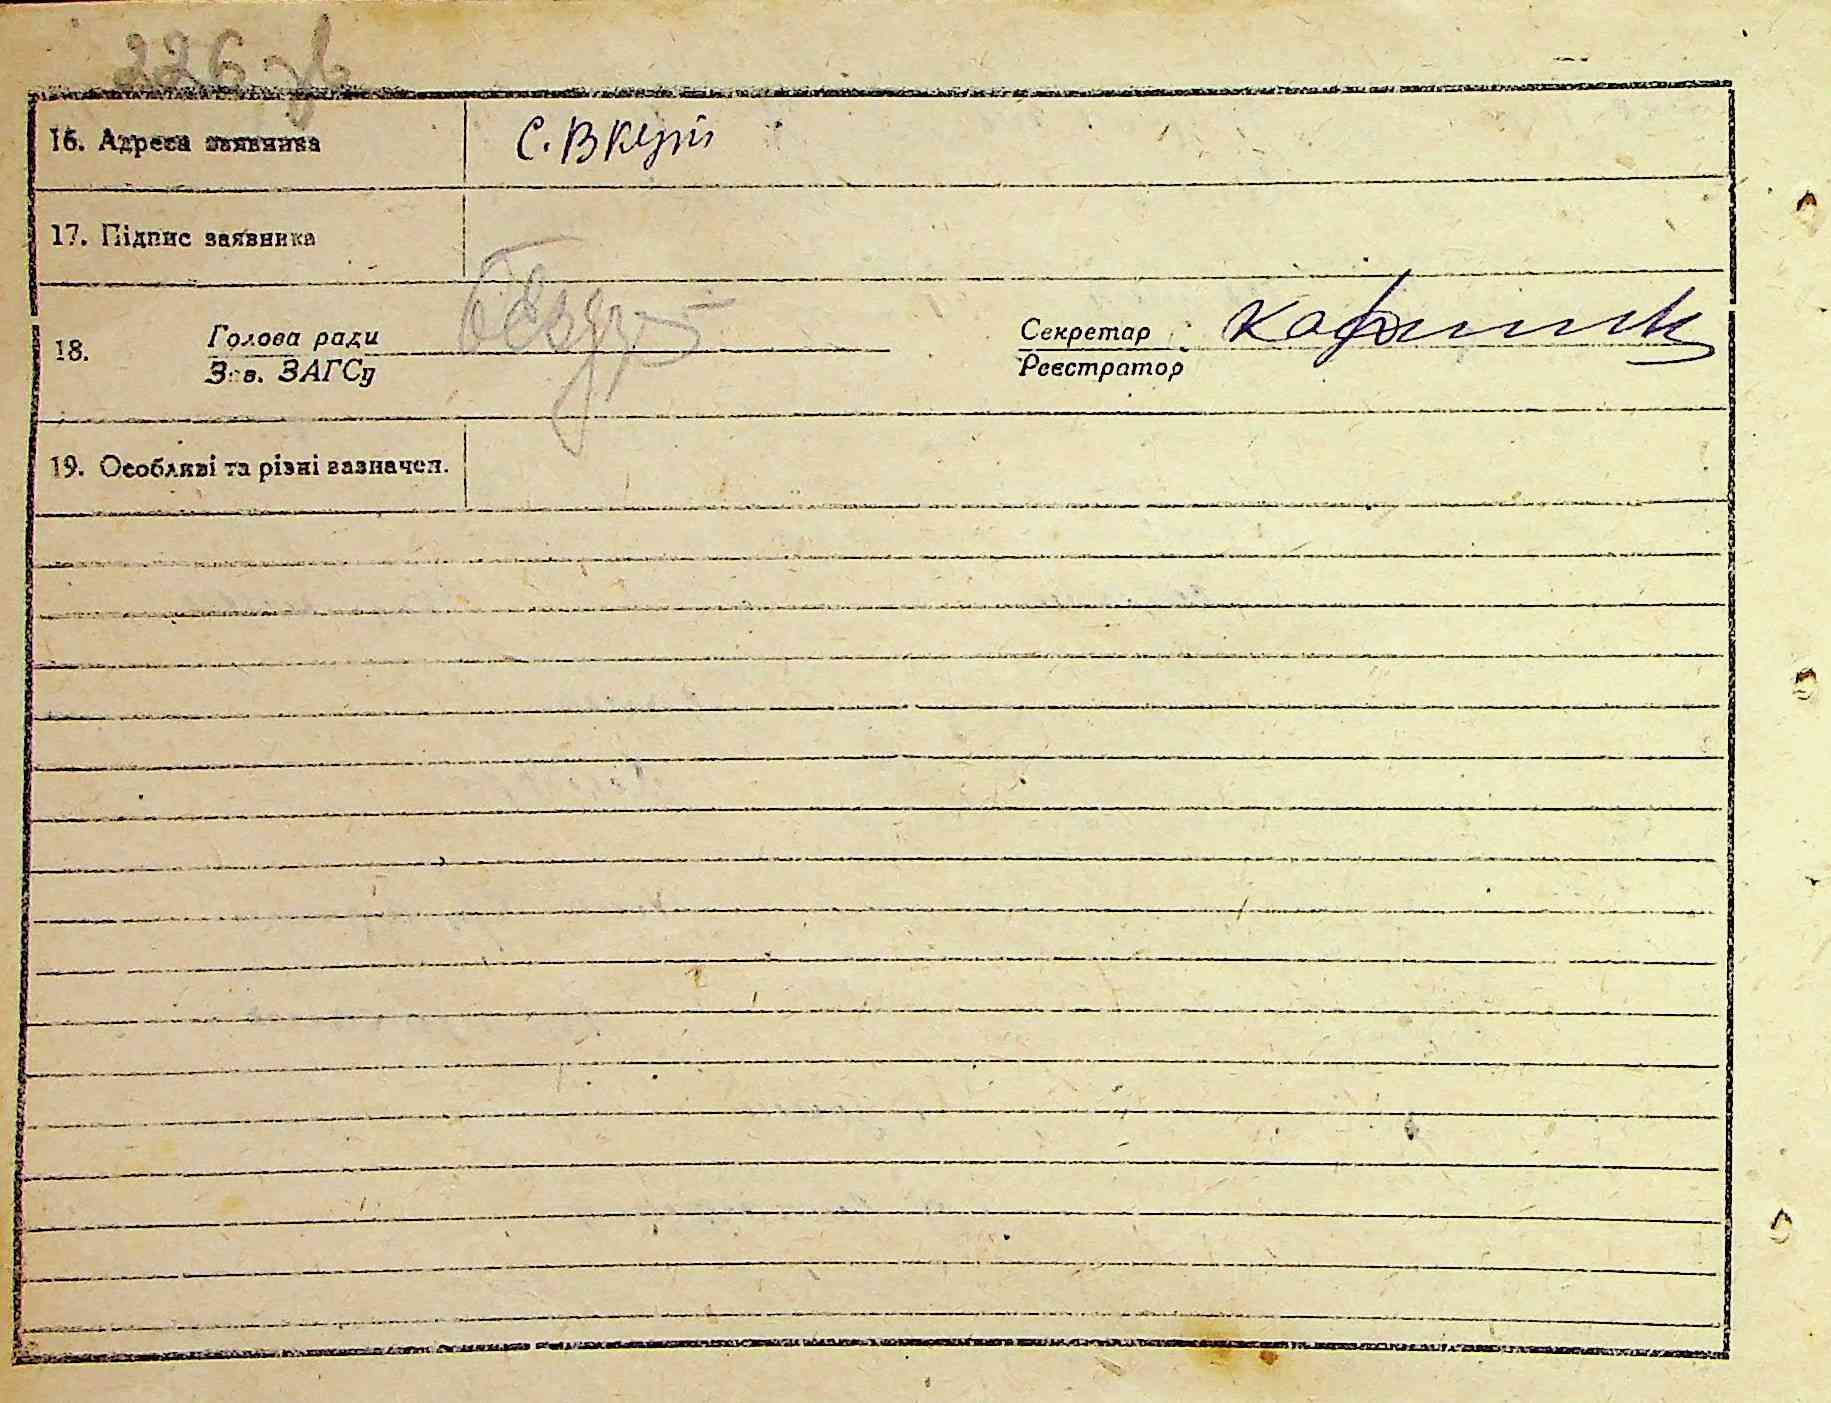 226 зв
16. Адреса заявника С. В Купіл
17. Підпис заявника
18. Голова ради Секретар
Зав. ЗАГСу Реєстратор
19. Особливі та різні зазначен.